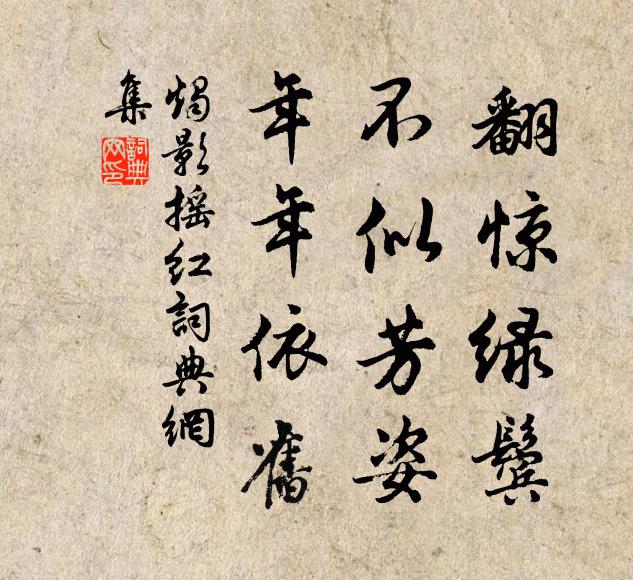 翻惊绿鬓
不似芳姿
年年依舊
燭影摇红詞典網
集
詞典
网印